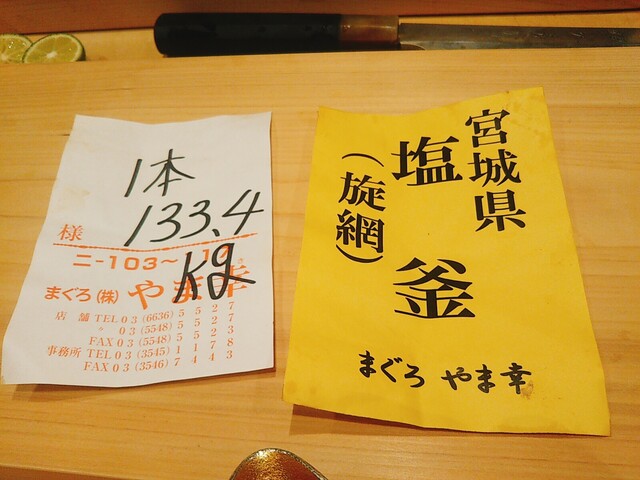 1本
133.4
kg
様
ニ-103~
まぐろ(株)やま幸
店舗 TEL 03(6636)5527
〃 03(5548)5527
FAX 03(5548)5523
事務所 TEL 03(3545)1178
FAX 03(3546)7443
宮城県
塩釜
(旋網)
まぐろ やま幸